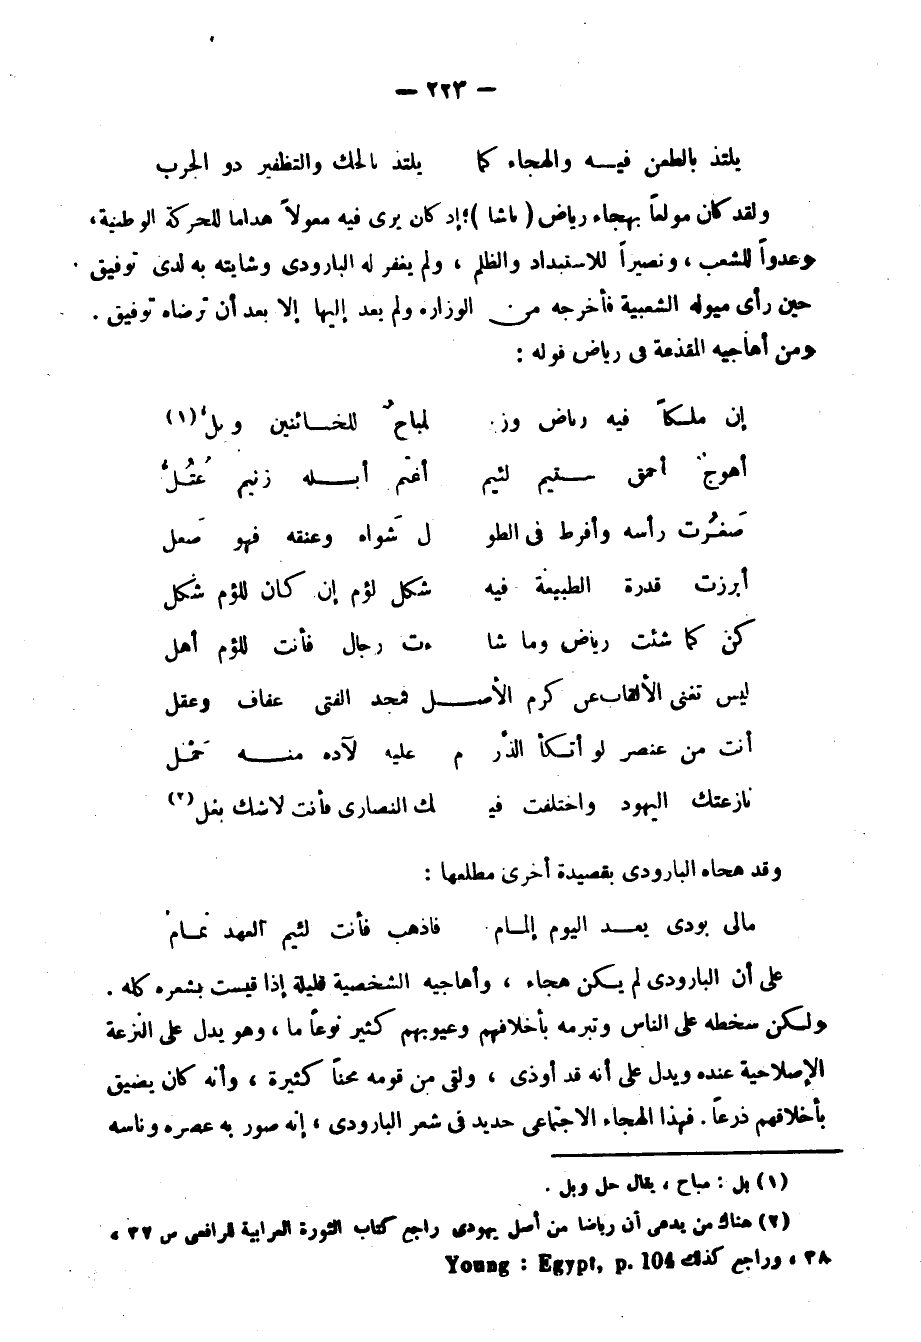 — ٢٢٣ —
يلتذ بالطعن فيـــه والهجاء كما يلتذ بالحك والتظفير ذو الجرب
ولقد كان مولعاً بهجاء رياض ( باشا )؛ إذ كان يرى فيه معولاً هداما للحركة الوطنية،
وعدواً للشعب ، ونصيراً للاستبداد والظلم ، ولم يغفر له البارودى وشايته به لدى توفيق
حين رأى ميوله الشعبية فأخرجه مـن الوزارة ولم يعد إليها إلا بعد أن ترضاه توفيق .
ومن أهاجيه المقذعة فى رياض قوله :
إن ملـكاً فيه رياض وز لمباحٌ للخـــائنين وبلُّ (١)
أهوجٌ أحمق ســتيم لئيم أغتم أبـــله زنيم عُتُلُّ
صَغُرت رأسه وأفرط فى الطو ل شَواه وعنقه فهو صَعل
أبرزت قدرة الطبيعة فيه شكل لؤم إن كان للؤم شكل
كن كما شئت رياض وما شا ءت رجال فأنت للؤم أهل
ليس تغنى الألقاب عن كرم الأصــل فمجد الفتى عفاف وعقل
أنت من عنصر لو أتـكأ الذر م عليه لآده منـــه حَمْل
نازعتك اليهود واختلفت فيـ ـك النصارى فأنت لاشك بغل (٢)
وقد هجاه البارودى بقصيدة أخرى مطلعها :
مالى بودى بعـــد اليوم إلمـام فاذهب فأنت لئيم العهد نمـام
على أن البارودى لم يكن هجاء ، وأهاجيه الشخصية قليلة إذا قيست بشعره كله .
ولـكن سخطه على الناس وتبرمه بأخلاقهم وعيوبهم كثير نوعاً ما ، وهو يدل على النزعة
الإصلاحية عنده ويدل على أنه قد أوذى ، ولقى من قومه محناً كثيرة ، وأنه كان يضيق
بأخلاقهم ذرعاً . فهذا الهجاء الاجتماعى جديد فى شعر البارودى ، إنه صور به عصره وناسه
(١) بل : مباح ، يقال حل وبل .
(٢) هناك من يدعى أن رياضا من أصل يهودى راجع كتاب الثورة العرابية للرافعى ص ٣٧ ،
٣٨ ، وراجع كذلك Young : Egypt, p. 104